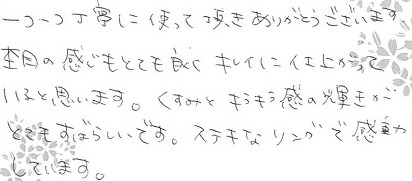 一つ一つ丁寧に使って頂きありがとうございます。
杢目の感じもとても良く キレイに仕上がって
いると思います。くすみと キラキラ感の輝きが
とてもすばらしいです。ステキなリングで感動
しています。